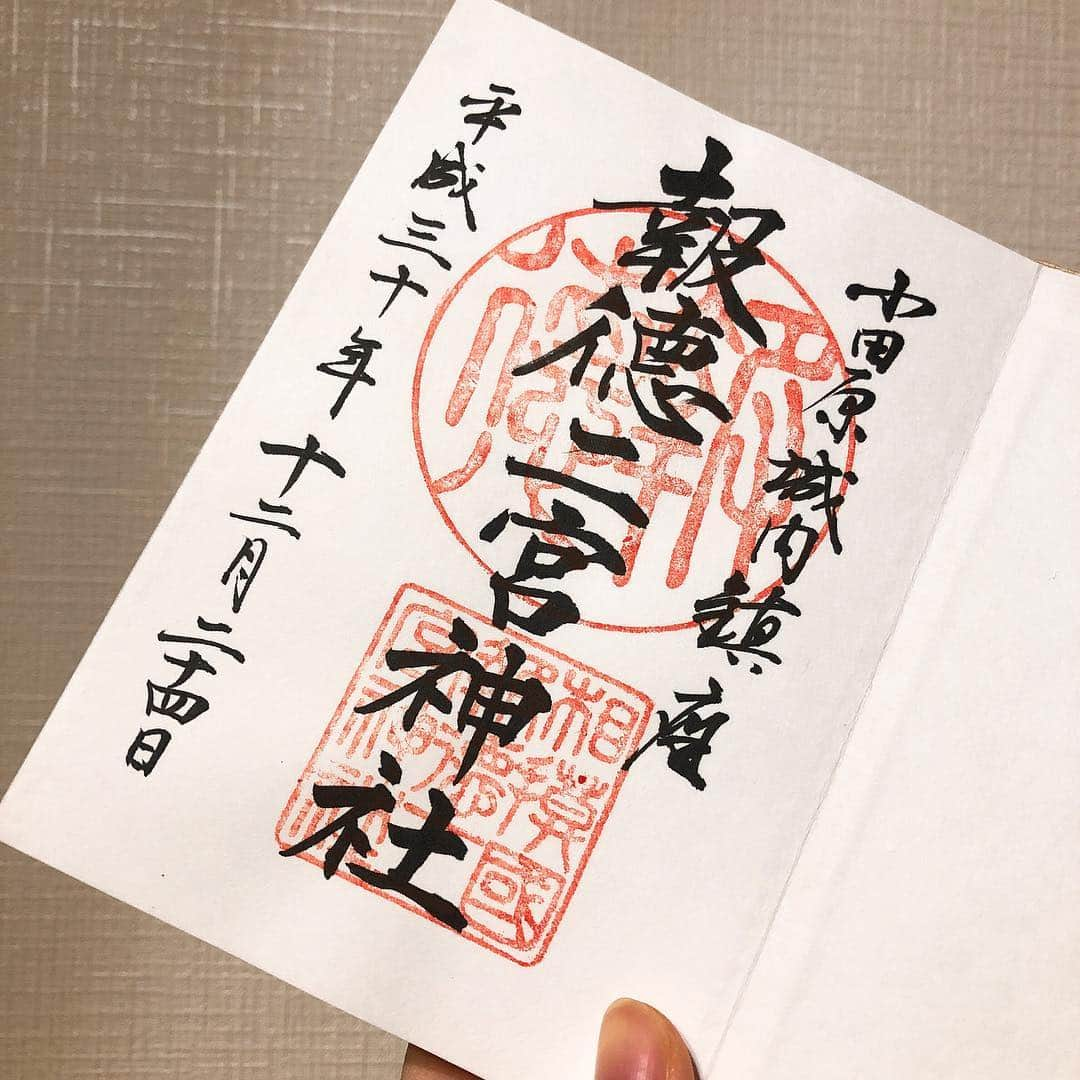 小田原城内鎮座
報徳二宮神社
平成三十年十二月二十四日
相模國